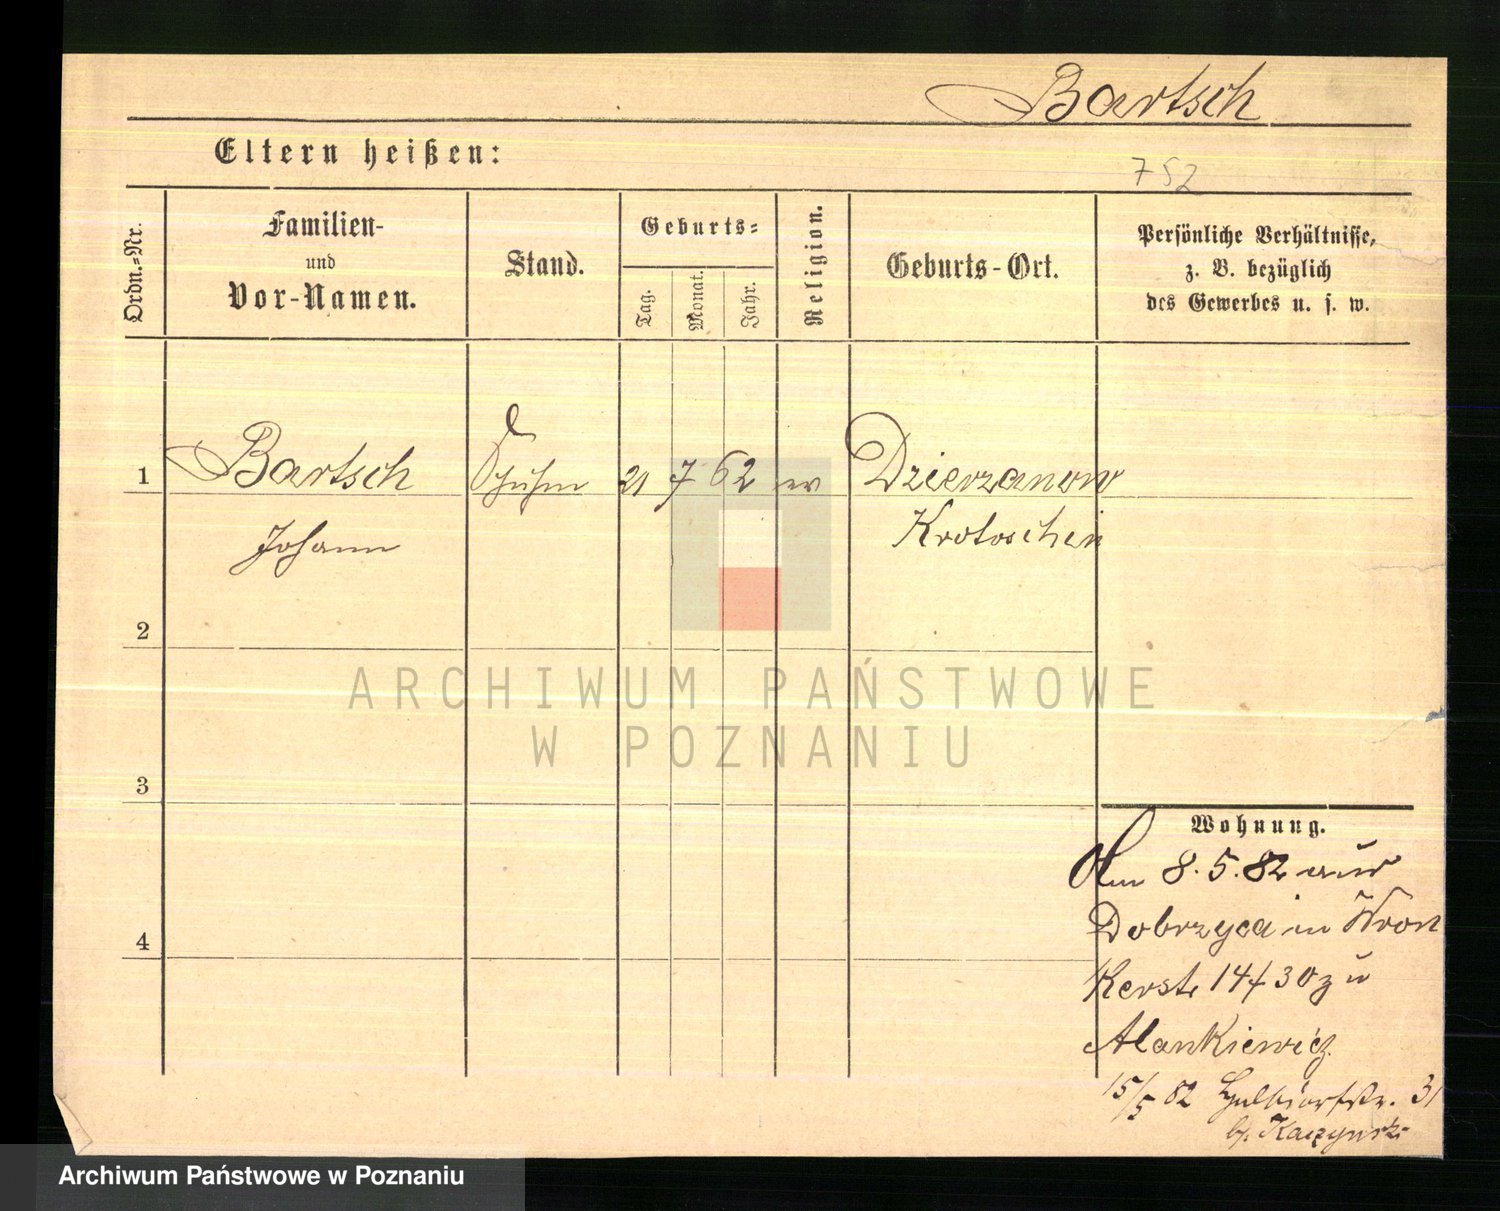 Bartsch
Eltern heißen:
752
Ordn.-Nr.
Familien-
und
Vor-Namen.
Stand.
Geburts-
Tag.
Monat.
Jahr.
Religion.
Geburts-Ort.
Persönliche Verhältnisse,
z. B. bezüglich
des Gewerbes u. s. w.
1 Bartsch Schuhm 21 7 62 ev Dzierzanow
Johann Krotoschin
2
3
4
Wohnung.
Am 8.5.82 aus
Dobrzyca in Wron
Kerstr 14/30 zu
15/5 82 31
b/. Kaczynski
ARCHIWUM PAŃSTWOWE
W POZNANIU
Archiwum Państwowe w Poznaniu